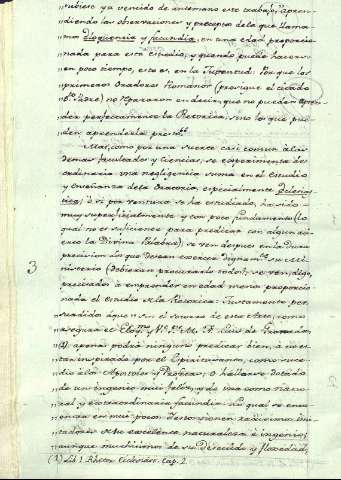 "hubiese ya vencido de antemano este trabajo, apren-
"diendo las observaciones y preceptos de la que llama-
"mos eloquencia y facundia, en una edad proporcio-
"nada para este estudio, y quando puede hacerse
"en poco tiempo, esto es, en la Juventud: Porque los
"primeros oradores Romanos (prosigue el citado
"V. Padre) no repararon en decir, que no pueden apren-
"der perfectamente la Retorica, sino los que pue-
"den aprenderla presto.
"Mas, como por una suerte casi comun à las
"demas facultades y ciencias, se experimenta de
"ordinario una negligencia suma en el estudio
"y enseñanza de la Oratoria, especialmente Ecleias-
"tica; ò si por ventura se ha estudiado, ha sido
"muy superficialmente y con poco fundamento (lo
"qual no es suficiente para predicar con algun
"exito la Divina Palabra) se ven despues en la dura
"precision los que desean exercer dignamte. su Mi-
"nisterio (debieran procurarlo todos), se ven, digo,
"precisados à emprender en edad menos proporcio-
3
"nada el estudio de la Retorica: Justamente per-
"suadidos de que sin el socorro de este Arte, como
"asegura el
Luis de Granada,
(1) apenas podrá ninguno predicar bien, à no es-
"tar inspirado por el Espiritu Santo, como suce-
"dio à los Apostoles y Profetas; ò hallarse dotado
"de un ingenio mui feliz, y de una como natu-
"ral y extraordinaria facundia: lo qual se encu-
"entra en mui pocos.
"tadores de la excelencia natural è ingenio,
"aunque muchisimos de su
(1) Lib. 1. Rhetor. Ecclesiast. Cap. 2.